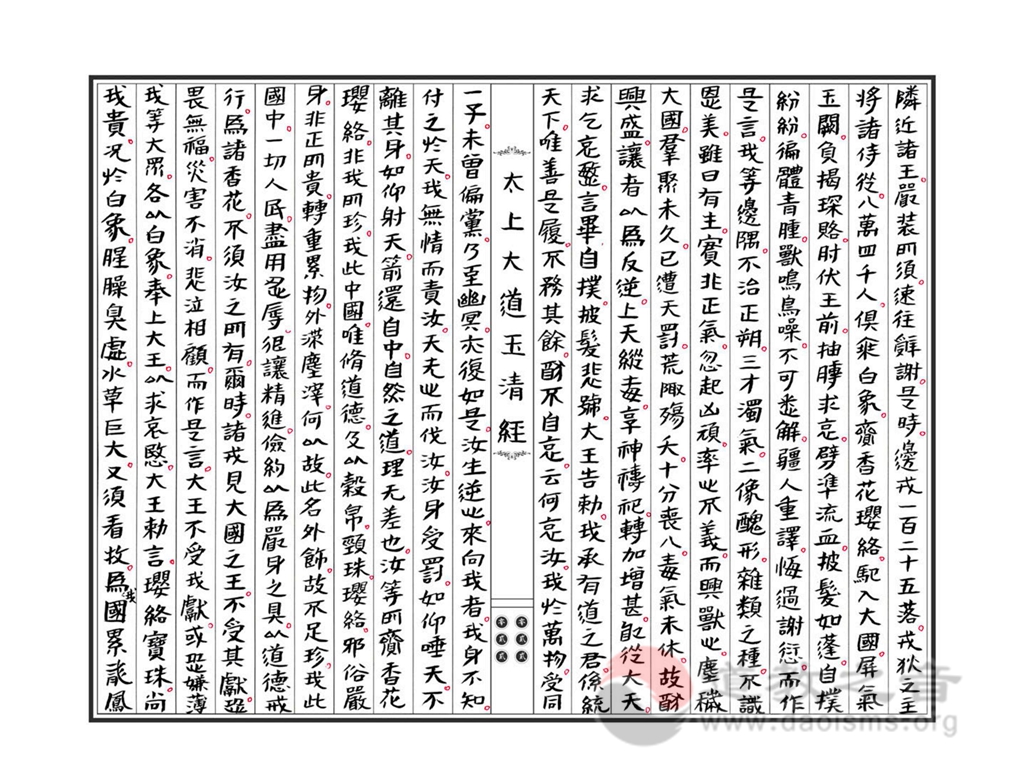 隣近諸王嚴裝所須速往辭謝是時邊戎一百二十五落戎狄之主
將諸侍從八萬四千人俱乘白象齎香花瓔絡馳入大國屏氣
玉闕負揭琛賂肘伏王前抽膊求哀劈準流血披髮如蓬自撲
紛紛徧體青腫獸鳴鳥噪不可悉解疆人重譯悔過謝愆而作
是言我等邊隅不治正朔三才濁氣二像醜形雜類之種不識
恩美雖曰有主實非正氣忽起凶頑率以不義而興獸心塵穢
大國羣聚未久已遭天罰荒陬殤夭十分喪八毒氣未休故
興盛讓者以為反逆上天縱毒享神禱祀轉加增甚自從大天
求乞哀愍言畢自撲披髮悲號大王告勅我承有道之君係統
天下唯善是履不務其餘 不自哀云何哀汝我於萬物受同
太上大道玉清經
零貳貳
零貳貳
一子未曾偏黨乃至幽冥亦復如是汝生逆心來向我者我身不知
付之於天我無情而責汝天无心而伐汝汝身受罰如仰唾天不
離其身如仰射天箭還自中自然之道理无差也汝等所齎香花
瓔絡非我所珍我此中國唯脩道德及以穀帛頸珠瓔絡邪俗嚴
身非正所貴轉重累物外深塵滓何以故此名外飾故不足珍我此
國中一切人民盡用忍辱退讓精進儉約以為嚴身之具以道德戒
行為諸香花不須汝之所有爾時諸戎見大國之王不受其獻
畏無福災害不消悲泣相顧而作是言大王不受我獻或恐嫌薄
我等大眾各以白象奉上大王以求哀愍大王勅言瓔絡寶珠尚
我貴況於白象腥臊臭 水草巨大又須看牧為我國累龍鳳
道教之音
www.daoisms.org